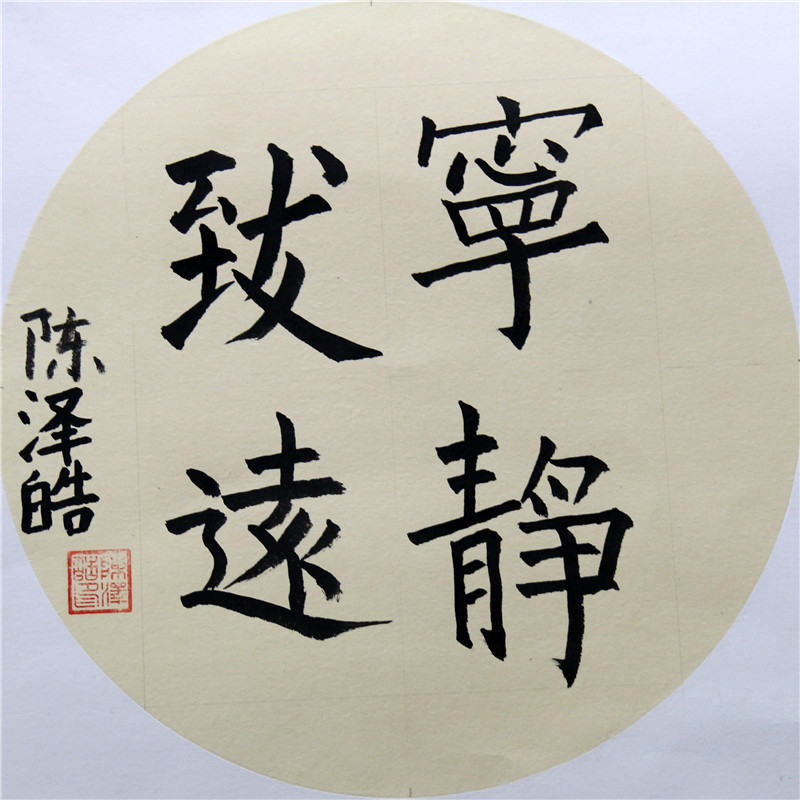 寧靜
致遠
陈泽皓